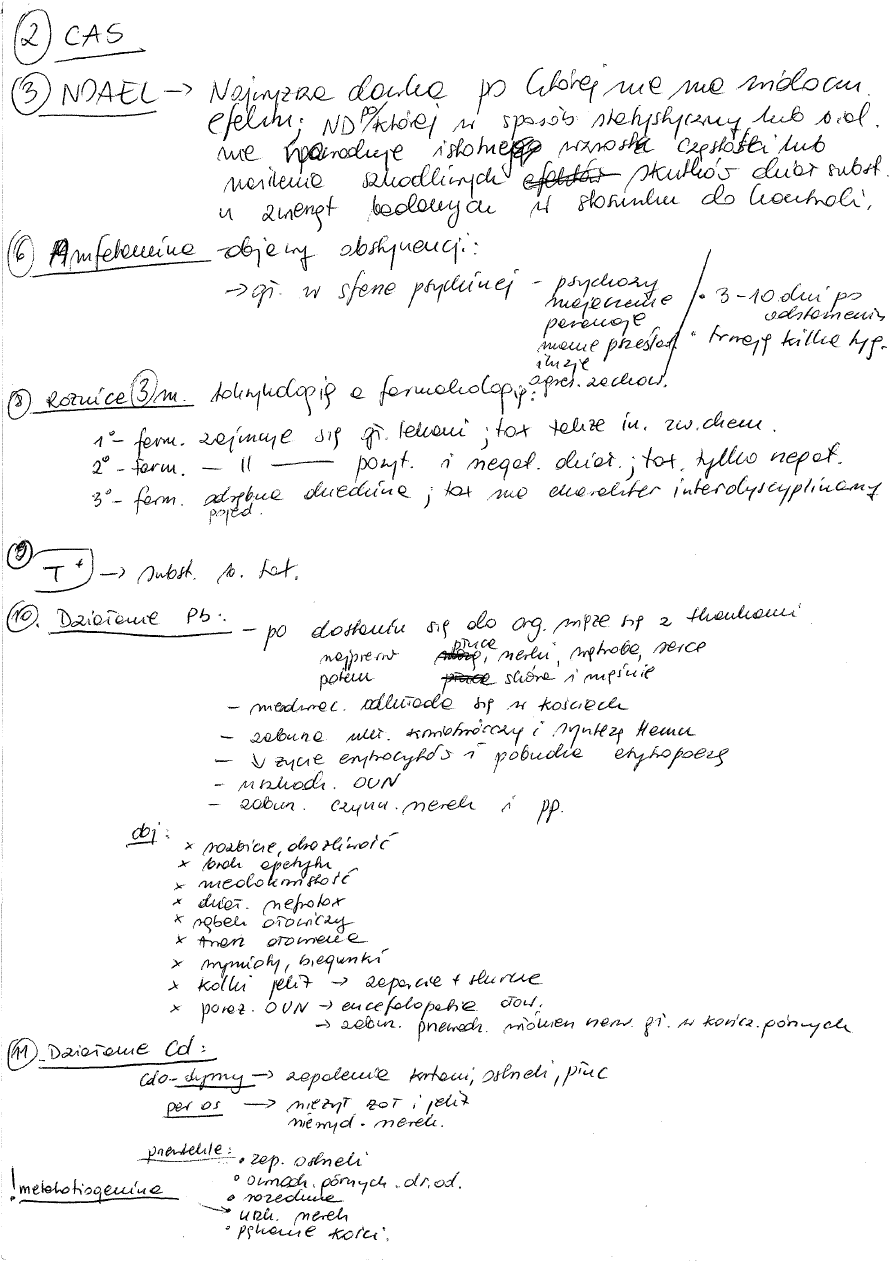 2 CAS
3 NOAEL → Najwyższa dawka po której nie ma widoczn.
efektu; ND po której w sposób statystyczny lub biol.
nie powoduje istotnego wzrostu częstości lub
nasilenia szkodliwych efektów skutków dział subst.
u zwierząt badanych w stosunku do kontroli.
6 Amfetamina - objawy abstynencji:
→ gł. w sferze psychicznej - psychozy
majaczenie
paranoje
manie prześlad
iluzje
agres. zachow.
• 3-10 dni po
odstawieniu
• trwają kilka tyg.
8 Różnice 3 m. toksykologią a farmakologią:
1° - farm. zajmuje się gł. lekami ; tox także in. zw. chem.
2° - farm. — 11 — pozyt. i negat. dział. ; tox. tylko negat.
3° - farm. odrębna dziedzina ; tox ma charakter interdyscyplinarny
pojed.
9 T+ → subst. b. tox.
10. Działanie Pb:
- po dostaniu się do org. wiąże się z tkankami
najpierw płuca, nerki, wątroba, serce
potem płuca skóra i mięśnie
- odkłada się w kościech
- zaburza ukł. krwiotwórczy i syntezę Hemu
- ↓ życie erytrocytów i pobudza erytropoezę
- uszkodz. OUN
- zabur. czynn. nerek i pp.
obj:
x rozbicie, drażliwość
x brak apetytu
x niedokrwistość
x dział. nefrotox
x rąbek ołowiczy
x twarz ołowicza
x wymioty, biegunki
x kolki jelit → zaparcie + skurcze
x poraż. OUN → encefalopatia ołow.
→ zabur. przewodz. włókien nerw. gł. w kończ. górnych
11 Działanie Cd:
CdO-dymy → zapalenie krtani, oskrzeli, płuc
per os → nieżyt żoł i jelit
niewyd. nerek.
przewlekłe:
• zap. oskrzeli
• górnych dr. od.
• rozedma
! metalotioneina → uszk. nerek
• pękanie kości.